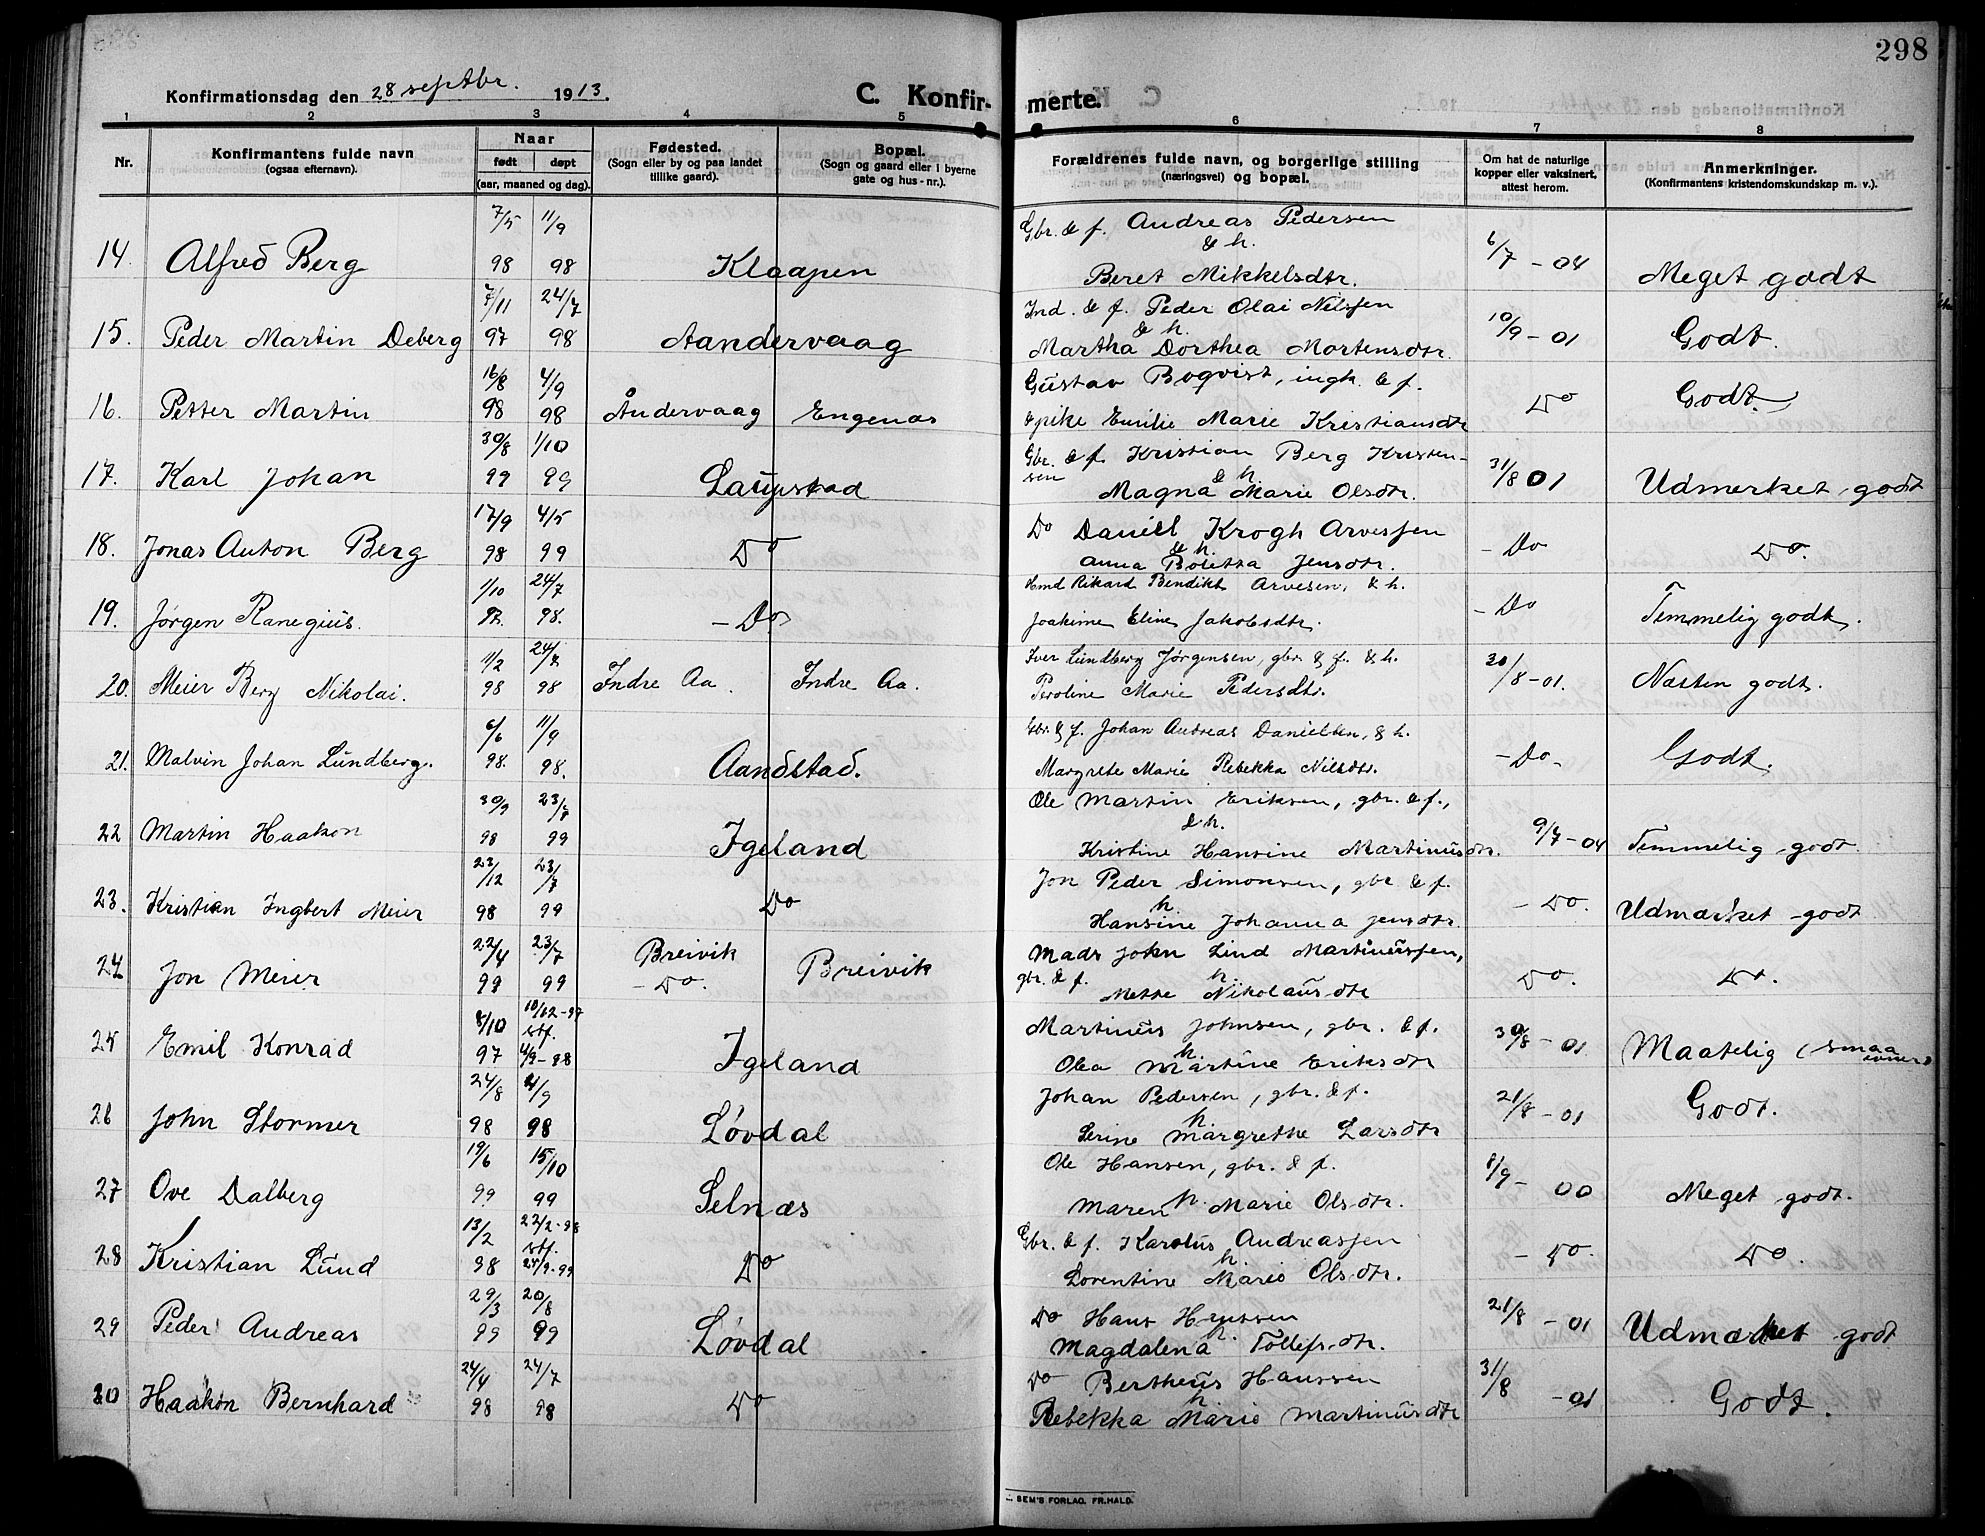 298
Konfirmationsdag den 28 septbr. 1913.
C. Konfirmerte.
1 2 3 4 5 6 7 8
Nr.
Konfirmantens fulde navn
(ogsaa efternavn).
Naar
født døpt
(aar, maaned og dag).
Fødested.
(Sogn eller by og paa landet
tillike gaard).
Bopæl.
(Sogn og gaard eller i byerne
gate og hus-nr.).
Forældrenes fulde navn, og borgerlige stilling
(næringsvei) og bopæl.
Om hat de naturlige
kopper eller vaksinert,
attest herom.
Anmerkninger.
(Konfirmantens kristendomskundskap m. v.).
7/5 11/9 Gbr. & f. Andreas Pedersen
& h. 6/7 - 04
14. Alfred Berg 98 98 Klaapen Beret Mikkelsdtr. Meget godt
7/11 24/7 Ind. & f. Peder Olai Nilssen
& h. 10/9 - 01
15. Peder Martin Deberg 97 98 Aandervaag Martha Dorthea Mortensdtr. Godt.
16/8 4/9 Gustav Boqvist, ingk. & f.
16. Petter Martin 98 98 Åndervaag Engenæs & pike Emilie Marie Kristiansdtr Do Godt.
30/8 1/10 Gbr. & f. Kristian Berg Kristen-
sen & h. 31/8 01
17. Karl Johan 99 99 Laupstad Magna Marie Olsdtr. Udmerket godt
17/9 4/5 Do Daniel Krogh Arvessen
& h.
18. Jonas Anton Berg 98 99 Do Anna Boletta Jensdtr. - Do Do.
1/10 24/7 Hmd Rikard Bendikt Arvesen, & h.
19. Jørgen Ranegius. 97. 98. - Do Joakime Eline Jakobsdtr. - Do Temmelig godt.
11/2 24/7 Iver Lundberg Jørgensen, gbr. & f. & h.
20. Meier Berg Nikolai. 98 98 Indre Aa. Indre Aa. Peroline Marie Pedersdtr. 30/8 - 01. Næsten godt.
6/6 11/9 Gbr. & f. Johan Andreas Danielsen, & h.
21. Malvin Johan Lundberg. 98. 98. Aandstad. Margrete Marie Rebekka Nilsdtr. - Do - Godt.
30/9 23/7 Ole Martin Eriksen, gbr. & f.,
& h.
22 Martin Haakon 98 99 Igeland Kristine Hansine Martinusdtr. 9/7 - 04 Temmelig godt.
23/12 23/7 Jon Peder Simonsen, gbr & f.
h.
23. Kristian Ingbert Meier 98 99 Do Hansine Johanna Jensdtr. - Do. Udmærket godt
22/4 23/7 Breivik Mads John Lind Martinussen,
gbr. & f. h.
24 Jon Meier 99 99 - Do. Breivik Mette Nikolausdtr Do. Do.
8/10 10/12-97 Martinus Johnsen, gbr. & f.
stf. h.
25 Emil Konrad 97 4/9-98 Igeland Olea Martine Eriksdtr 30/8 - 01 Maatelig (smaa evner)
24/8 4/9 Johan Pedersen, gbr. & f.
h.
26 John Stormer 98 98 Løvdal Serine Margrethe Larsdtr 21/8 - 01 Godt.
19/6 15/10 Ole Hansen, gbr. & f.
h.
27 Ove Dalberg 99 99 Selnæs Maren Marie Olsdtr. 8/9 - 00 Meget godt.
13/2 22/2-98 Gbr. & f. Karolus Andreassen
stf. h.
28 Kristian Lund 98 24/9-99 Do Lorentine Marie Olsdtr. - Do. Do.
29/3 20/8 Do Hans Hanssen
h.
29 Peder Andreas 99 99 Løvdal Magdalena Tollefsdtr. 21/8 - 01 Udmærket godt
24/4 24/7 Do Bertheus Hanssen
h.
30 Haakon Bernhard 98 98 Do Rebekka Marie Martinusdtr 31/8 - 01 Godt.
SEM'S FORLAG. FR.HALD.